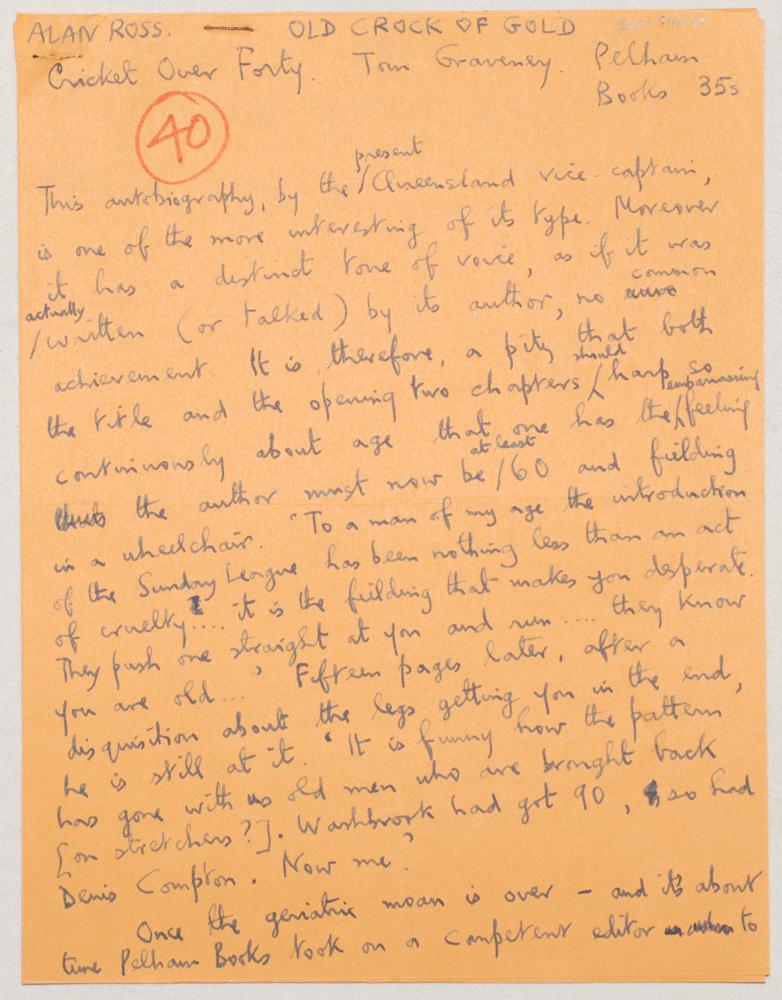 ALAN ROSS. OLD CROCK OF GOLD
Cricket Over Forty. Tom Graveney. Pelham
Books 35s
40
present
This autobiography, by the /Queensland vice-captain,
is one of the more interesting of its type. Moreover
it has a distinct tone of voice, as if it was
actually common
/written (or talked) by its author, no
achievement. It is, therefore, a pity that both
should
the title and the opening two chapters / harp so
embarrassing
continuously about age that one has the / feeling
at least
the author must now be /60 and fielding
in a wheelchair. "To a man of my age the introduction
of the Sunday League has been nothing less than an act
of cruelty.... it is the fielding that makes you desperate.
They push one straight at you and run .... they know
you are old...' Fifteen pages later, after a
disquisition about the legs getting you in the end,
he is still at it. 'It is funny how the pattern
has gone with us old men who are brought back
[on stretchers?]. Washbrook had got 90, so had
Denis Compton. Now me'.
Once the geriatric moan is over - and it's about
time Pelham Books took on a competent editor to